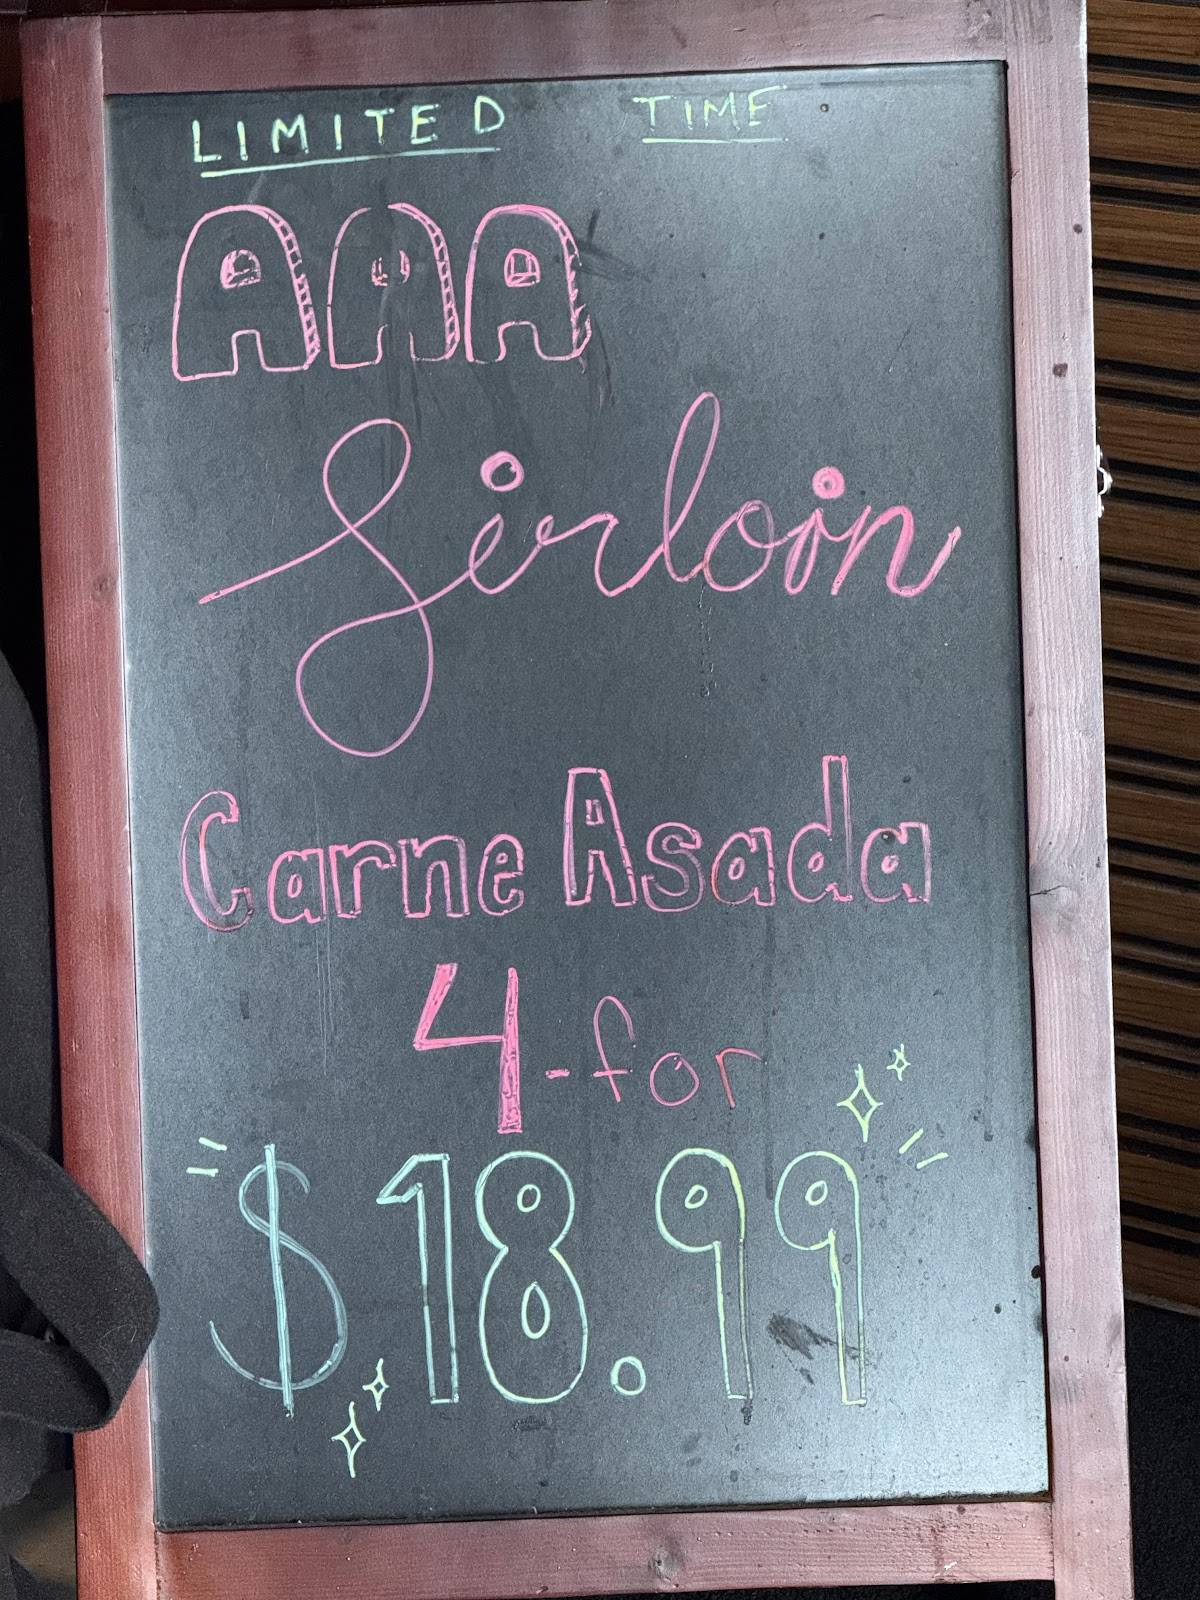 LIMITED TIME
AAA
Sirloin
Carne Asada
4-for
$18.99